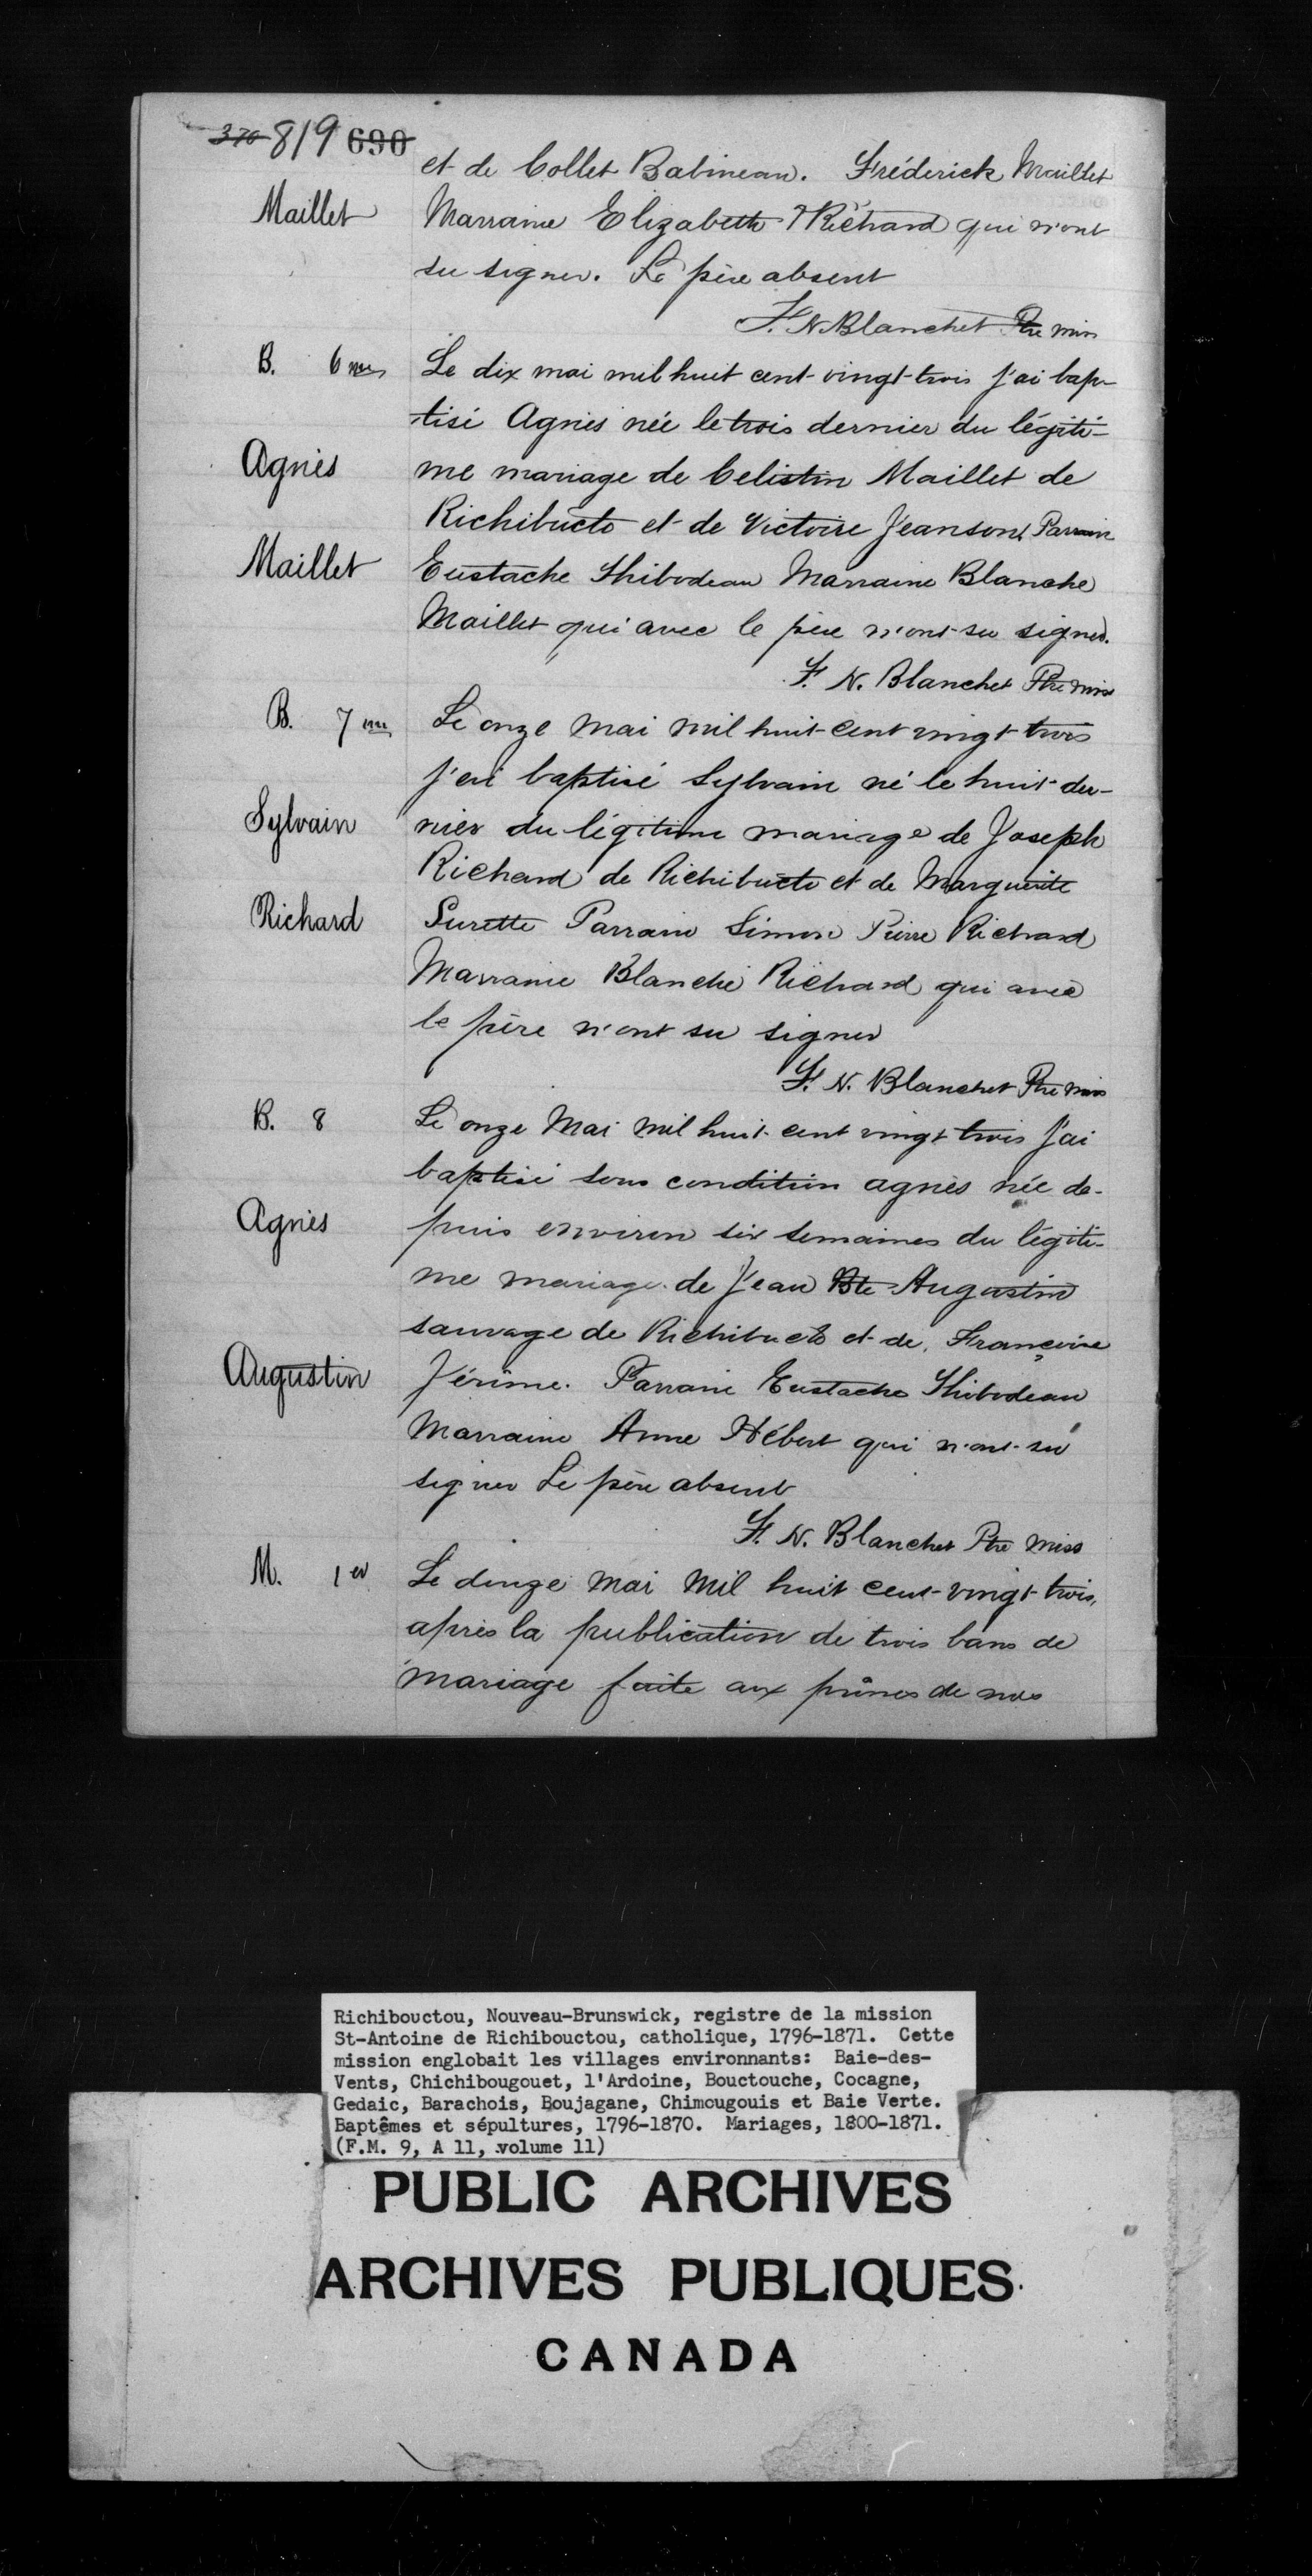 370 819 690
et de Collet Babineau. Fréderick Maillet
Maillet Marraine Elizabeth Richard qui n'ont
su signer. Le père absent
F. N Blanchet Ptre miss
B. 6me Le dix mai mil huit cent vingt-trois j'ai bap-
tisé Agnès née le trois dernier du légiti-
Agnès me mariage de Celistin Maillet de
Richibucto et de Victoire Jeanson. Parrain
Maillet Eustache Thibodeau Marraine Blanche
Maillet qui avec le père n'ont su signer.
F. N. Blanchet Ptre miss
B. 7me Le onze Mai mil huit cent vingt trois
j'ai baptisé Sylvain né le huit der-
Sylvain nier du légitime mariage de Joseph
Richard de Richibucto et de Marguerite
Richard Surette Parrain Simon Pierre Richard
Marraine Blanche Richard qui avec
le père n'ont su signer
F. N. Blanchet Ptre miss
B. 8 Le onze Mai mil huit cent vingt trois j'ai
baptisé sous condition agnès née de-
Agnès puis environ six semaines du légiti-
me mariage de Jean Bte Augustin
sauvage de Richibucto et de Françoise
Augustin Jérôme. Parrain Eustache Thibodeau
Marraine Anne Hébert qui n'ont su
signer Le père absent
F. N. Blanchet Ptre Miss
M. 1er Le douze Mai Mil huit cent vingt trois,
après la publication de trois bans de
mariage faite aux prônes de nos
Richibouctou, Nouveau-Brunswick, registre de la mission
St-Antoine de Richibouctou, catholique, 1796-1871. Cette
mission englobait les villages environnants: Baie-des-
Vents, Chichibougouet, l'Ardoine, Bouctouche, Cocagne,
Gedaic, Barachois, Boujagane, Chimougouis et Baie Verte.
Baptêmes et sépultures, 1796-1870. Mariages, 1800-1871.
(F.M. 9, A 11, volume 11)
PUBLIC ARCHIVES
ARCHIVES PUBLIQUES
CANADA